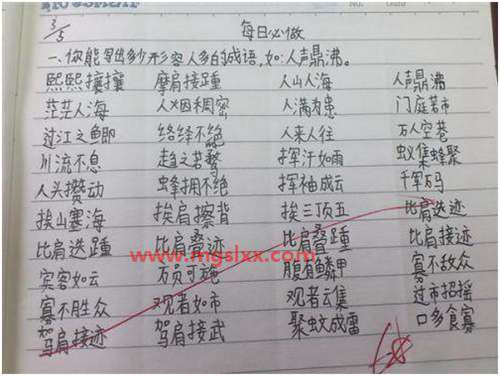 3/5
每日必做
一、你能写出多少形容人多的成语,如:人声鼎沸。
熙熙攘攘 摩肩接踵 人山人海 人声鼎沸
茫茫人海 人烟稠密 人满为患 门庭若市
过江之鲫 络绎不绝 人来人往 万人空巷
川流不息 趋之若鹜 挥汗如雨 蚁集蜂聚
人头攒动 蜂拥不绝 挥袖成云 千军万码
挨山塞海 挨肩擦背 挨三顶五 比肩迭迹
比肩迭踵 比肩叠迹 比肩叠踵 比肩接迹
宾客如云 万员可施 鳞甲 寡不敌众
寡不胜众 观者如市 观者云集 过市招摇
驾肩接迹 驾肩接武 聚蚊成雷 口多食寡
www.mgslxx.com